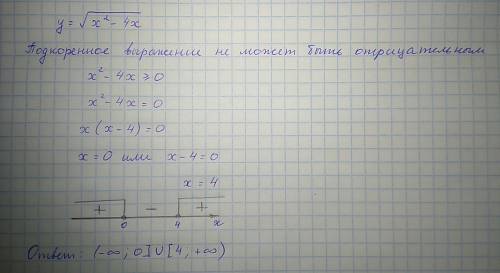 y = √(x² - 4x)
Подкоренное выражение не может быть отрицательным
x² - 4x ≥ 0
x² - 4x = 0
x (x - 4) = 0
x = 0 или x - 4 = 0
x = 4
+ - +
0 4 x
Ответ: (-∞; 0] ∪ [4; +∞)